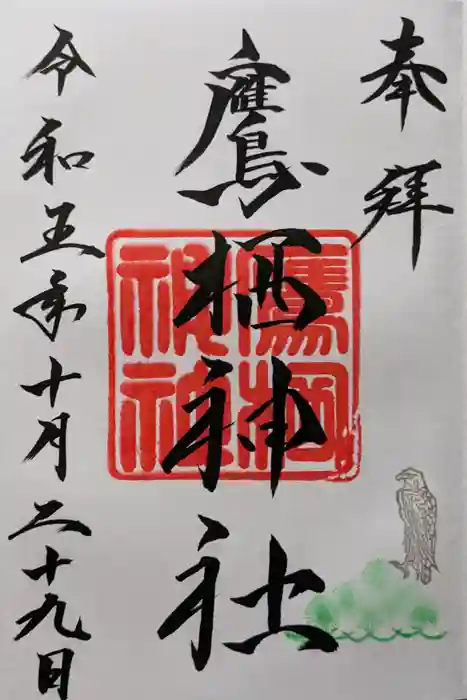 奉拝
鷹栖神社
令和五年十月二十九日
鷹栖神社